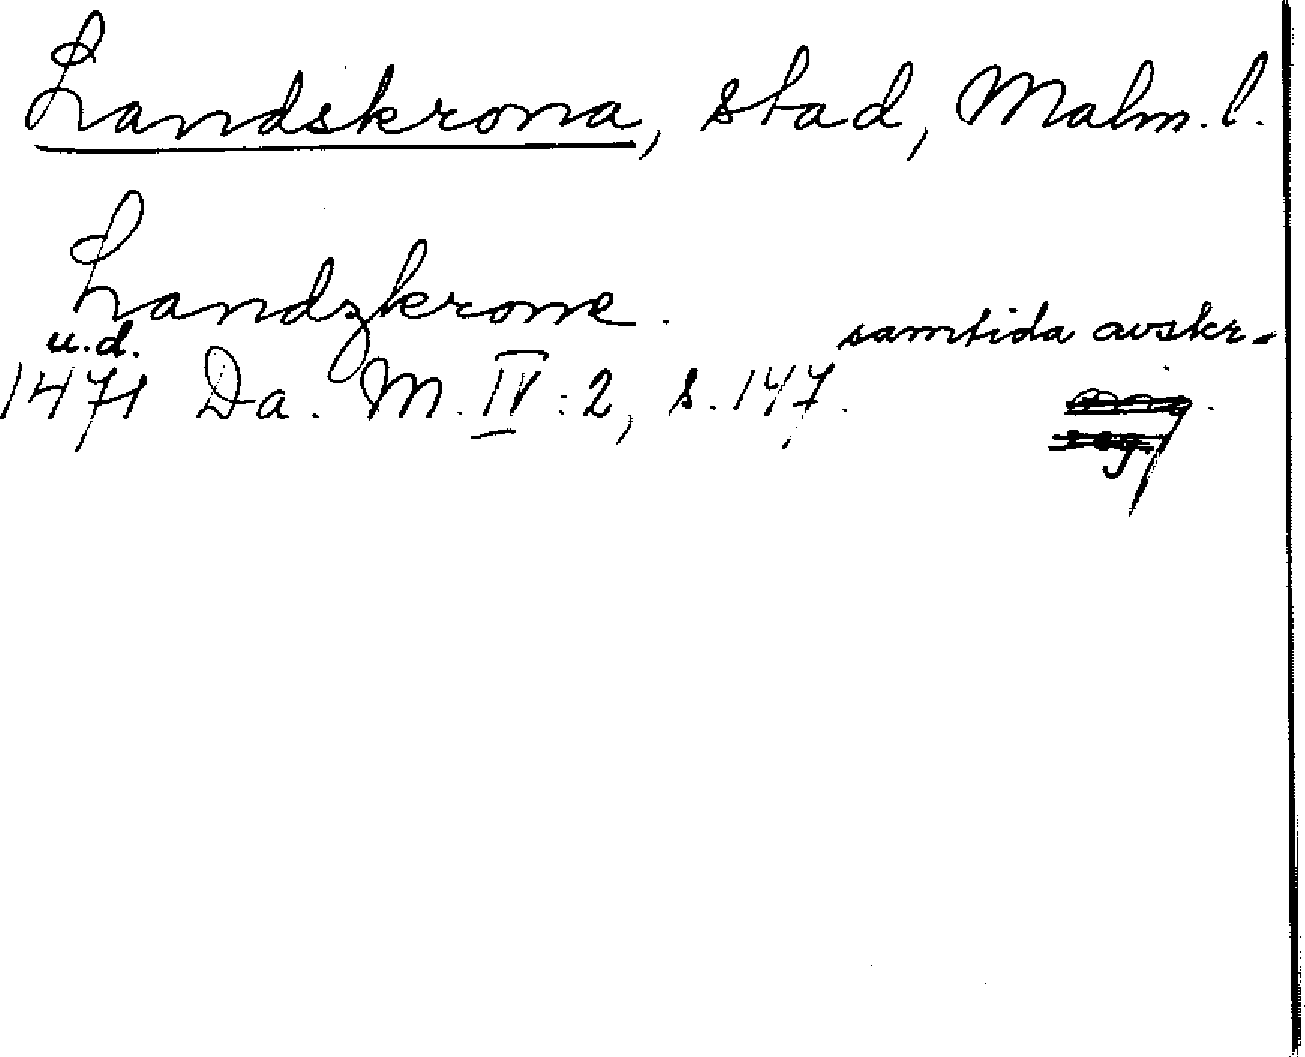 Landskrona, stad, Malm. l.
Landzkrone.
u.d. samtida avskr.
1471 Da. M. IV: 2, s. 147.